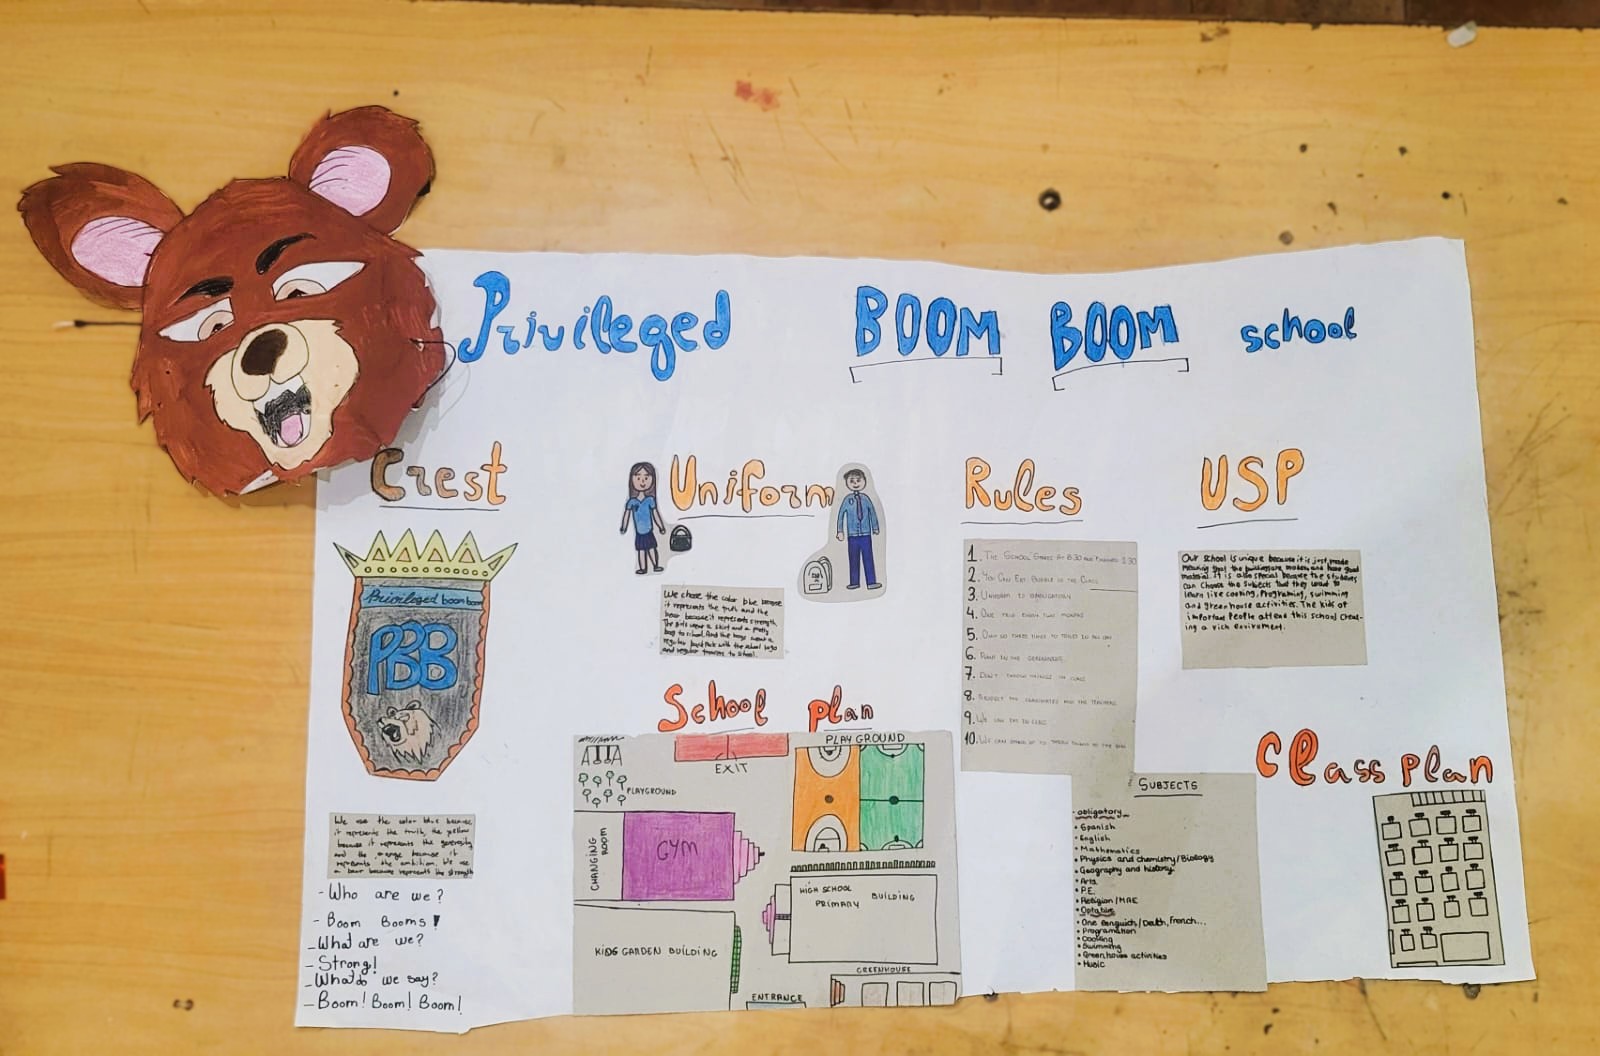 Privileged BOOM BOOM school
Crest
Privileged boom boom
PBB
We use the color blue because
it represents the truth, the yellow
because it represents the generosity
and the orange because it
represents the ambition. We use
a bear because represents the strength
- Who are we?
- Boom Booms!
- What are we?
- Strong!
- What do we say?
- Boom! Boom! Boom!
Uniform
We chose the color blue because
it represents the truth and the
bear because it represents strength.
The girls wear a skirt and a pretty
bag to school. And the boys wear a
regular with the school logo
and regular to school.
School plan
PLAYGROUND
EXIT
PLAYGROUND
CHANGING ROOM
GYM
HIGH SCHOOL
PRIMARY BUILDING
KIDS GARDEN BUILDING
GREENHOUSE
ENTRANCE
Rules
1. THE SCHOOL STARTS AT 8:30 AND FINISHES 3:30
2. YOU CAN EAT BUBBLE IN THE CLASS
3. UNIFORM IS OBLIGATORY
4. ONE TRIP EVERY TWO MONTHS
5. ONLY GO THREE TIMES TO TOILET IN ALL DAY
6. PLANT IN THE GREENHOUSE
7. DON'T THROW THINGS IN CLASS
8. RESPECT THE CLASSMATES AND THE TEACHERS
9. WE CAN EAT IN CLASS
10. WE CAN STAND UP TO THROW THINGS TO THE BIN
SUBJECTS
obligatory
• Spanish
• English
• Mathematics
• Physics and chemistry/Biology
• Geography and history
• Arts
• P.E.
• Religion/MAE
• Optative
• One languich/Deuth, French...
• Programation
• Cooking
• Swimming
• Greenhouse activities
• Music
USP
Our school is unique because it is just made
meaning that the buildings are modern and have good
material. It is also special because the students
can choose the subjects that they want to
learn like cooking, Programing, swimming
and greenhouse activities. The kids of
important people attend this school creat-
ing a rich enviroment.
Class plan